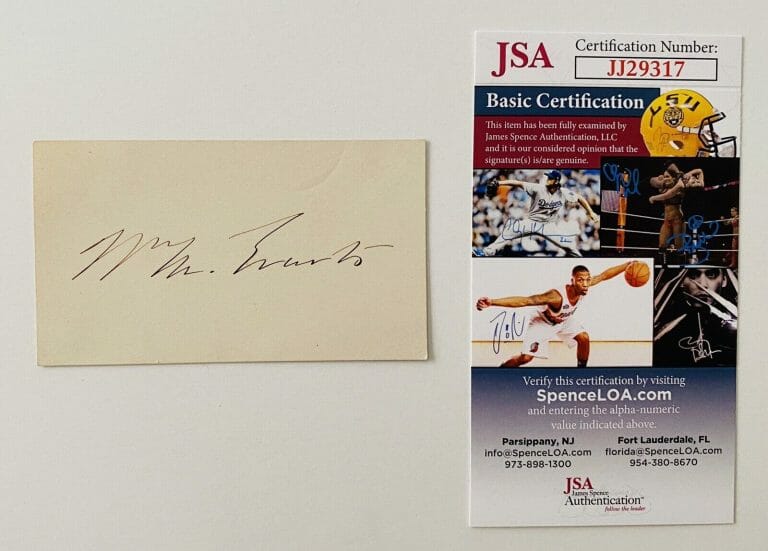 Wm. M. Evarts
JSA
Certification Number:
JJ29317
Basic Certification
LSU
This item has been fully examined by
James Spence Authentication, LLC
and it is our considered opinion that the
signature(s) is/are genuine.
Dodgers
22
Verify this certification by visiting
SpenceLOA.com
and entering the alpha-numeric
value indicated above.
Parsippany, NJ
info@SpenceLOA.com
973-898-1300
Fort Lauderdale, FL
florida@SpenceLOA.com
954-380-8670
JSA
James Spence
Authentication
follow the leader